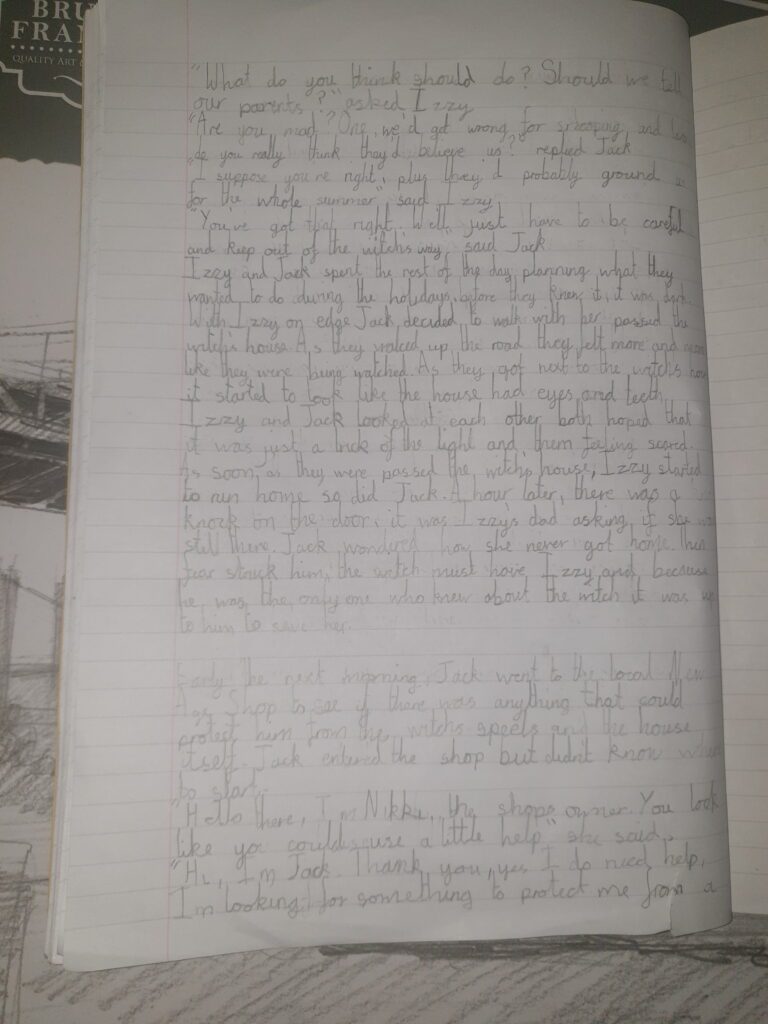 BRU
FRAN
QUALITY ART &
"What do you think should do? Should we tell
our parents?" asked Izzy
"Are you mad? One, we'd get wrong for snooping, and two
do you really think they'd believe us?" replied Jack
"I suppose you're right, plus they'd probably ground us
for the whole summer" said Izzy
"You've got that right. We'll just have to be careful
and keep out of the witch's way, said Jack.
Izzy and Jack spent the rest of the day planning what they
wanted to do during the holidays, before they knew it, it was dark.
With Izzy on edge Jack decided to walk with her passed the
witch's house. As they walked up the road they felt more and more
like they were being watched. As they got next to the witch's house
it started to look like the house had eyes and teeth.
Izzy and Jack looked at each other both hoped that
it was just a trick of the light and them feeling scared.
As soon as they were passed the witch's house, Izzy started
to run home so did Jack. A hour later, there was a
knock on the door, it was Izzy's dad asking, if she was
still there. Jack wondered how she never got home then
fear struck him, the witch must have Izzy and because
he was the only one who knew about the witch it was up
to him to save her.
Early the next morning, Jack went to the local New
Age Shop to see if there was anything that could
protect him from the witchs spells and the house
itself. Jack entered the shop but didn't know where
to start.
"Hello there, I'm Nikki, the shops owner. You look
like you could use a little help" she said.
"Hi, I'm Jack. Thank you, yes I do need help,
I'm looking for something to protect me from a